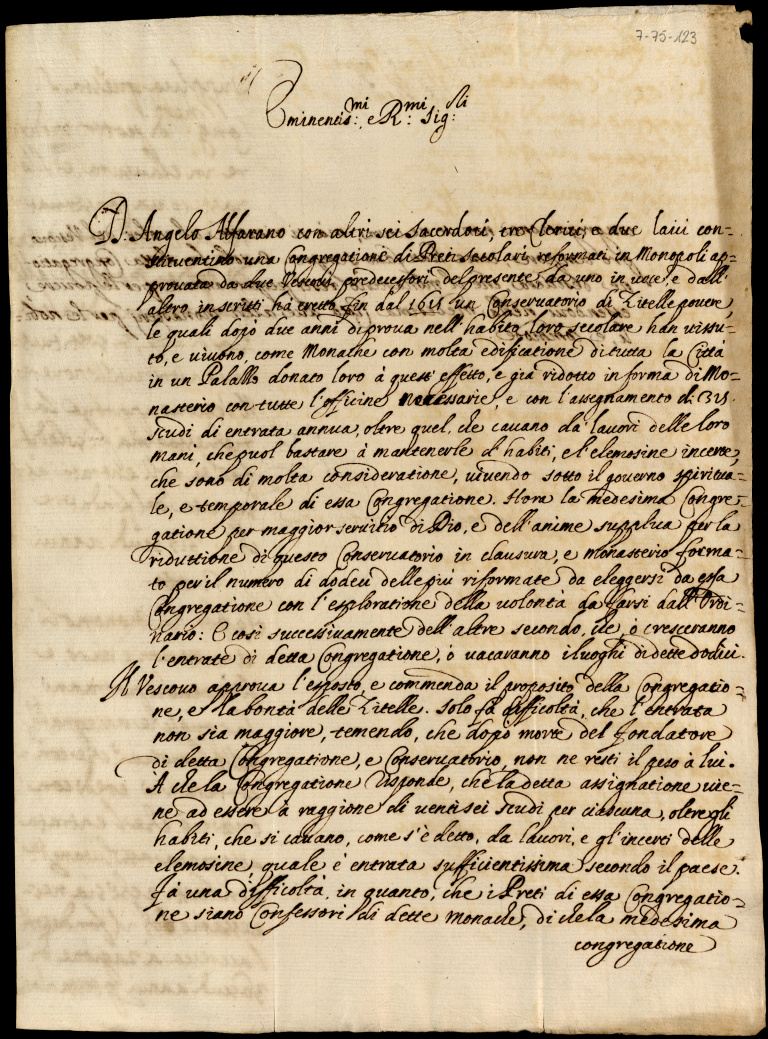 7-75-123
Eminentis:mi e R:mi Sig:ri
D. Angelo Alfarano con altri sei sacerdoti, tre Clerici, e due laici con=
stituentino una Congregatione di Preti secolari reformati in Monopoli ap=
provata da due Vescovi predecessori del presente, da uno in voce, e dall'
altro in scritti hà eretto fin dal 1615 un Conservatorio di Zitelle povere,
le quali dopò due anni di prova nell'habito loro secolare han vissu=
to, e vivono, come Monache con molta edificatione di tutta la Città
in un Palazzo donato loro à quest'effetto, e già ridotto in forma di Mo=
nasterio con tutte l'officine necessarie, e con l'assegnamento di 315
scudi di entrata annua, oltre quel, che cavano da' lavori delle loro
mani, che puol bastare à mantenerle d'habiti, e l'elemosine incerte,
che sono di molta consideratione, vivendo sotto il governo spiritua=
le, e temporale di essa Congregatione. Hora la medesima Congre=
gatione per maggior servitio di Dio, e dell'anime supplica per la
riduttione di questo Conservatorio in clausura, e monasterio forma=
to per il numero di dodeci delle più riformate da eleggersi da essa
Congregatione con l'esploratione della volontà da farsi dall'Ordi=
nario: E così successivamente dell'altre secondo, che, ò cresceranno
l'entrate di detta Congregatione, ò vacaranno i luoghi di dette dodici.
Il Vescovo approva l'esposto, e commenda il proposito della Congregatio=
ne, e la bontà delle Zitelle. Solo fà difficoltà, che l'entrata
non sia maggiore, temendo, che dopò morte del fondatore
di detta Congregatione, e Conservatorio, non ne resti il peso à lui.
A che la Congregatione risponde, che la detta assignatione vie=
ne ad essere à raggione di ventisei scudi per ciascuna, oltre gli
habiti, che si cavano, come s'è detto, da lavori, e gl'incerti delle
elemosine, quale è entrata sufficientissima secondo il paese.
Fà una difficoltà, in quanto, che i Preti di essa Congregatio=
ne siano Confessori di dette monache, di che la medesima
congregatione